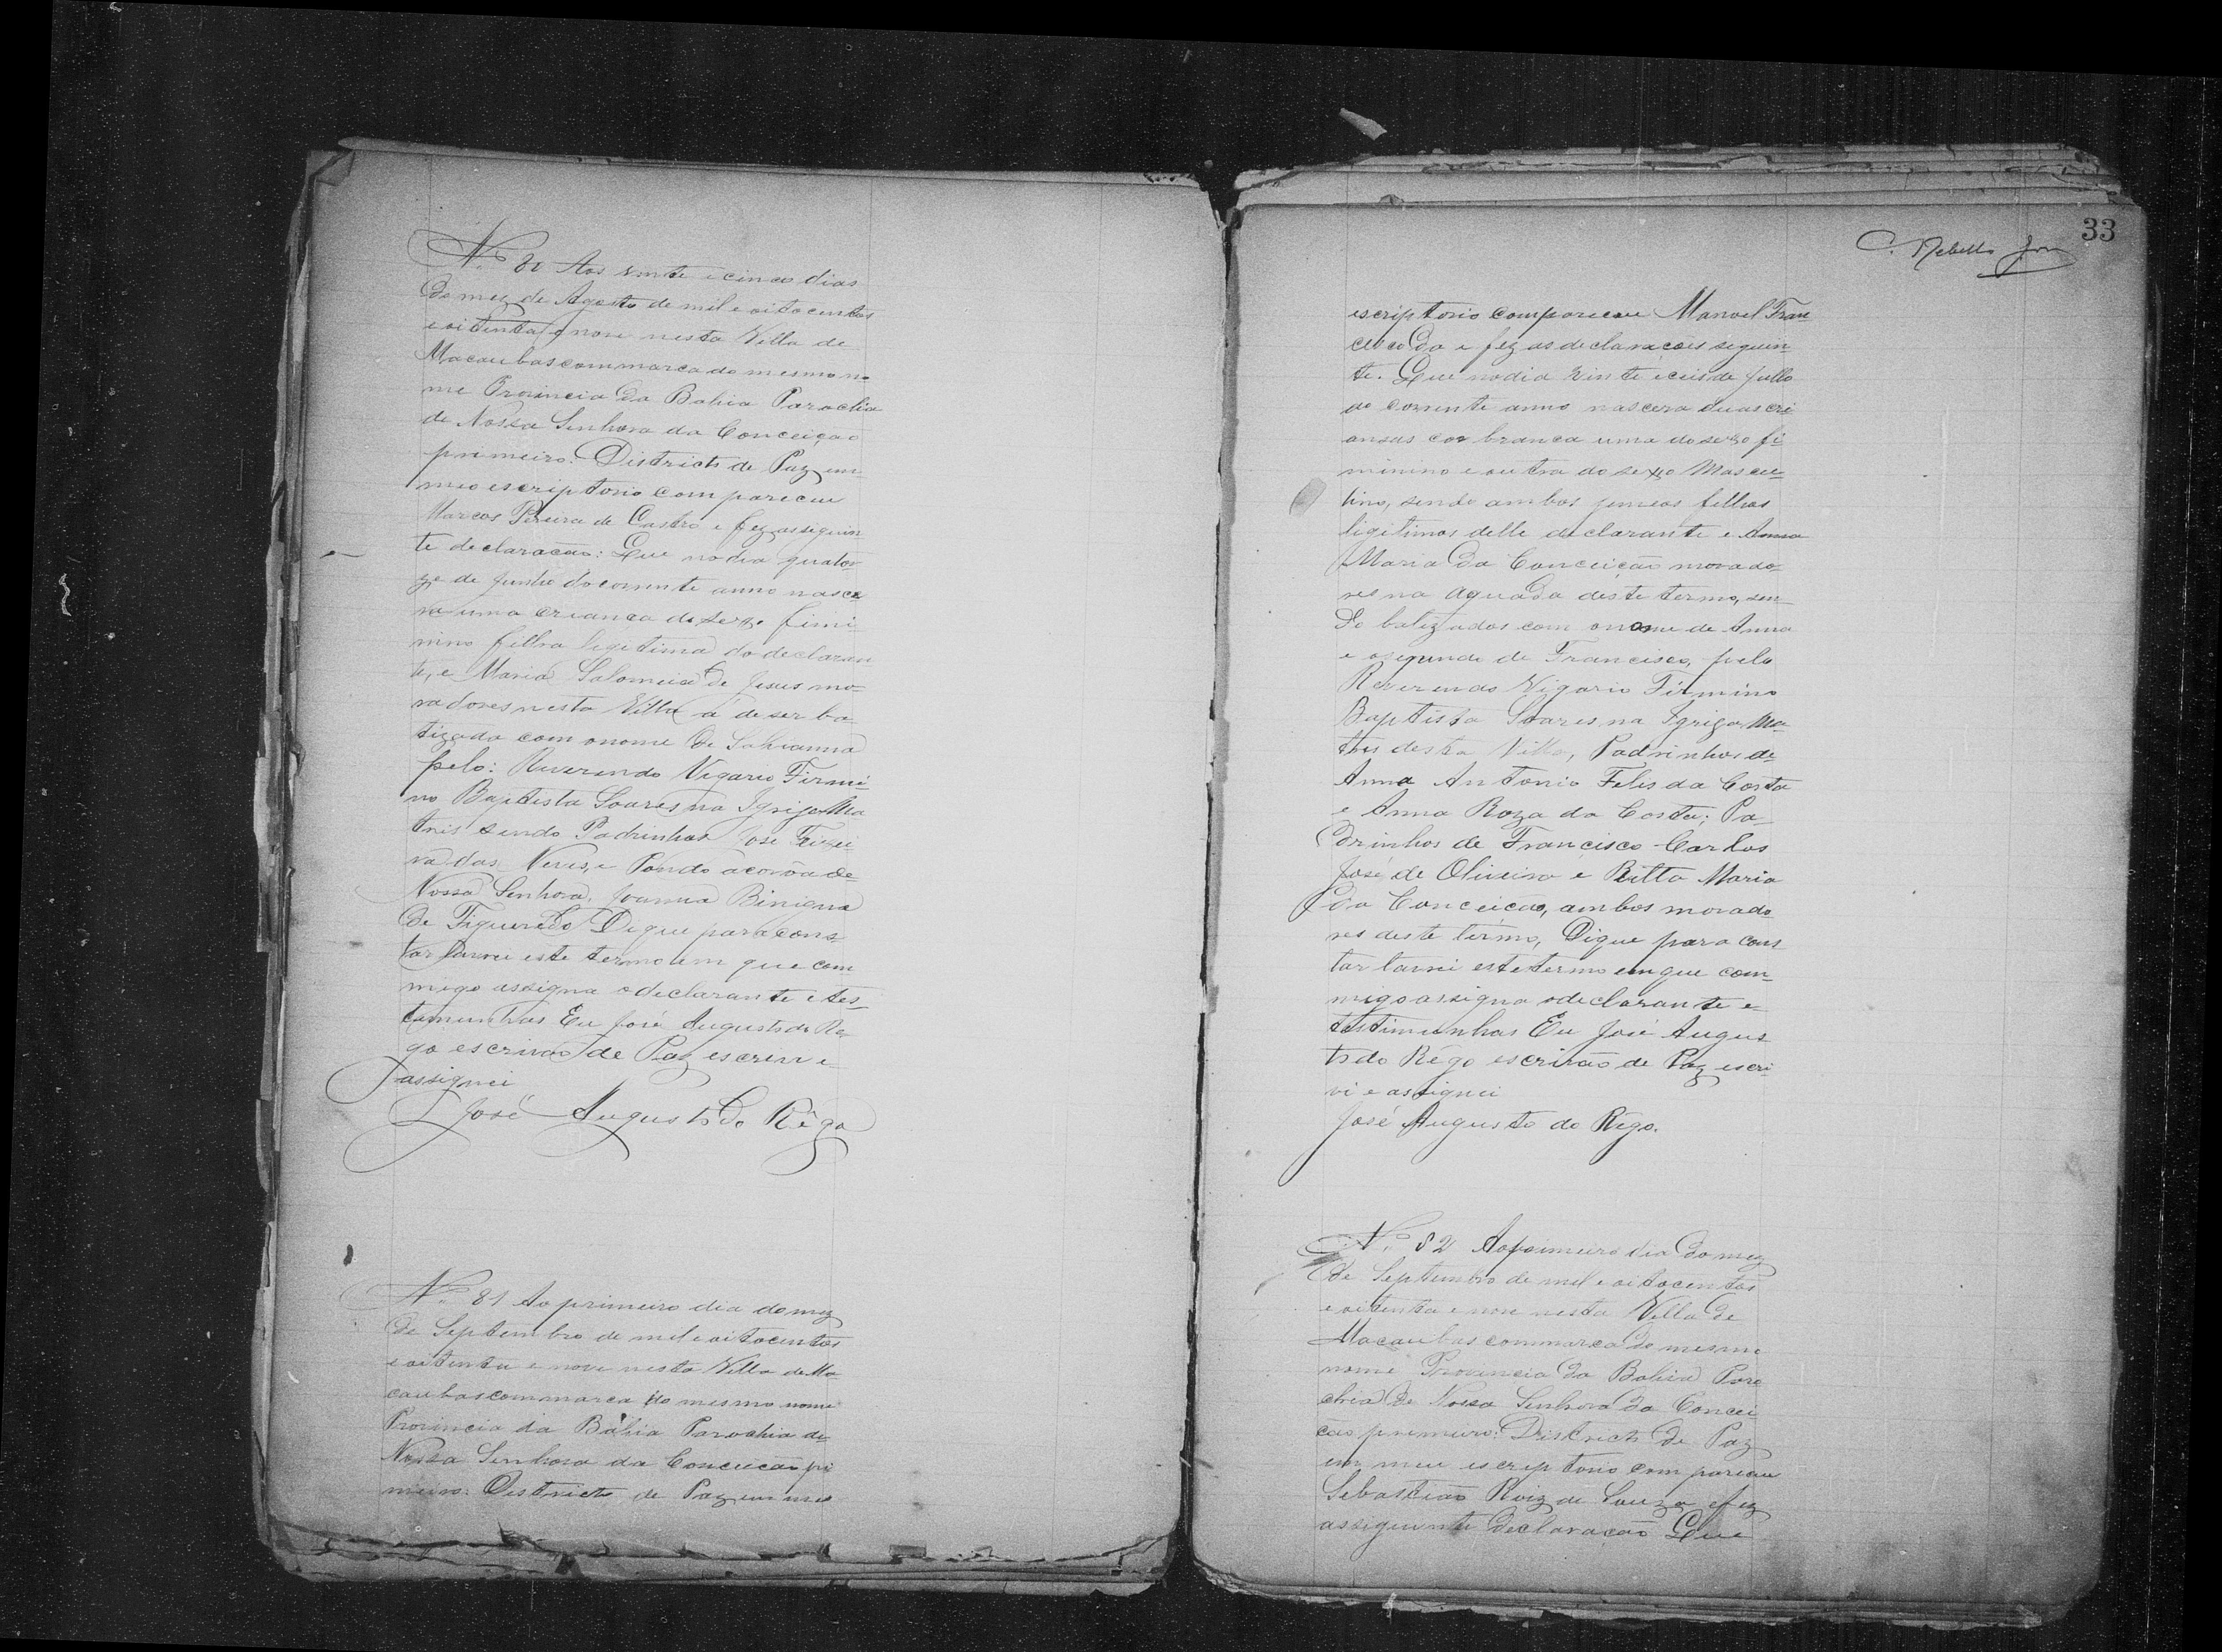 Nº 80 Aos vinte e cinco dias
do mez de Agosto de mil e oitocentos
e oitenta e nove nesta Villa de
Macaubas commarca do mesmo no
me Provincia da Bahia Parochia
de Nossa Senhora da Conceiçao
primeiro: Districto de Paz em
meo escriptorio compareceu
Marcos Pereira de Castro e fez as seguin
te declaracão: Que no dia quator
ze de Junho do corrente anno nasce
ra uma crianca do sexo femi-
nino filha legitima do declaran
te, e Maria Salomeia de Jesus mo-
radores nesta Villa á de ser ba
tizada com o nome de
pelo: Reverendo Vigario Firmi-
no Baptista Soares na Igriga Ma
tris sendo Padrinhos José
ra das Neves, e Pondo a corôa de
Nossa Senhora, Joanna Binigna
de Figueredo Digue para cons
tar Lavrei este termo em que com
migo assigna o declarante e tes-
temunhas Eu José Augusto do Re-
go escrivão de Paz escrivi e
assignei
José Augusto do Rêgo
Nº 81 Ao primeiro dia do mez
de Septembro de mil e oitocentos
e oitenta e nove nesta Villa de Ma
caubas commarca do mesmo nome
Provincia da Bahia Parochia de
Nossa Senhora da Conceicão pri
meiro: Districto de Paz em meo
33
C. Rebello Jor
escriptorio compareceu Manoel Fran
cisco Da e fez as declaracoes seguin-
te. Que no dia vinte e seis de Julho
do corrente anno nascera duas cri
ansas cor branca uma do sexo fi-
minino e outra do sexo Mascu-
lino, sendo ambos gemeos filhos
ligitimos delle declarante e Anna
Maria da Conceicão morado-
res na Aguada deste termo, sen-
do batizados com o nome de Anna
e o segundo de Francisco, pelo
Reverendo Vigario Firmino
Baptista Soares na Igriga Ma-
tris desta Villa, Padrinhos de
Anna Antonio Felis da Costa
e Anna Roza da Costa; Pa-
drinhos de Francisco Carlos
José de Oliveira e Ritta Maria
da Conceicão, ambos morado
res deste termo, Digue para cons
tar lavrei este termo em que com-
migo assigna o declarante e
testimunhas Eu José Augus
to do Rêgo escrivão de Paz escri-
vi e assignei
José Augusto do Rêgo.
Nº 82 Ao primeiro dia do mez
de Septembro de mil e oitocentos
e oitenta e nove nesta Villa de
Macaubas commarca do mesmo
nome Provincia da Bahia Paro
chia de Nossa Senhora da Concei
cão primeiro: Districto de Paz
em meu escriptorio compareceu
Sebastião Roiz de Souza e fez
as seguinte declaracão Que